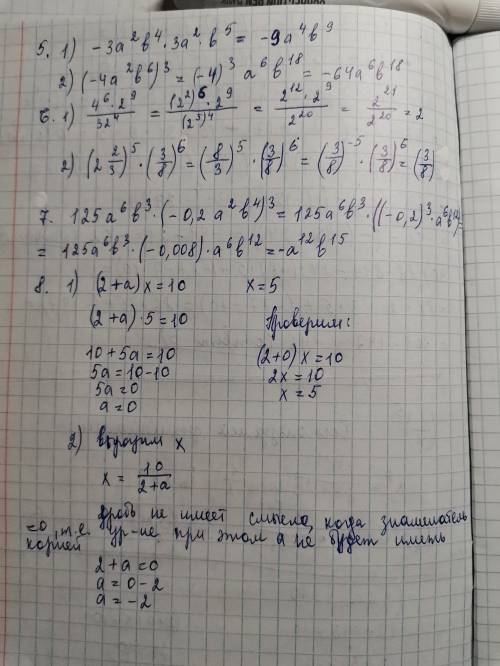 5. 1) -3a²b⁴ · 3a² · b⁵ = -9a⁴b⁹
2) (-4a²b⁶)³ = (-4)³ a⁶b¹⁸ = -64a⁶b¹⁸
6. 1) 4⁶·2⁹/32⁴ = (2²)⁶·2⁹/(2⁵)⁴ = 2¹²·2⁹/2²⁰ = 2²¹/2²⁰ = 2
2) (2 2/3)⁵ · (3/8)⁶ = (8/3)⁵ · (3/8)⁶ = (3/8)⁻⁵ · (3/8)⁶ = (3/8)
7. 125a⁶b³ · (-0,2 a²b⁴)³ = 125a⁶b³ · ((-0,2)³ · a⁶b¹²) =
= 125a⁶b³ · (-0,008) · a⁶b¹² = -a¹²b¹⁵
8. 1) (2+a)x = 10 x = 5
(2+a)·5 = 10 Проверим:
10+5a = 10 (2+0)x = 10
5a = 10-10 2x = 10
5a = 0 x = 5
a = 0
2) выразим x
x = 10/2+a
дробь не имеет смысла, когда знаменатель
=0, т.е. ур-ие при этом a не будет иметь
корней
2+a = 0
a = 0-2
a = -2